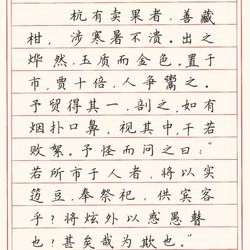 杭有卖果者，善藏
柑，涉寒暑不溃。出之
烨然，玉质而金色。置于
市，贾十倍，人争鬻之。
予贸得其一，剖之，如有
烟扑口鼻，视其中，干若
败絮。予怪而问之曰："
若所市于人者，将以实
笾豆，奉祭祀，供宾客
乎？将炫外以惑愚瞽
也？甚矣哉为欺也。"